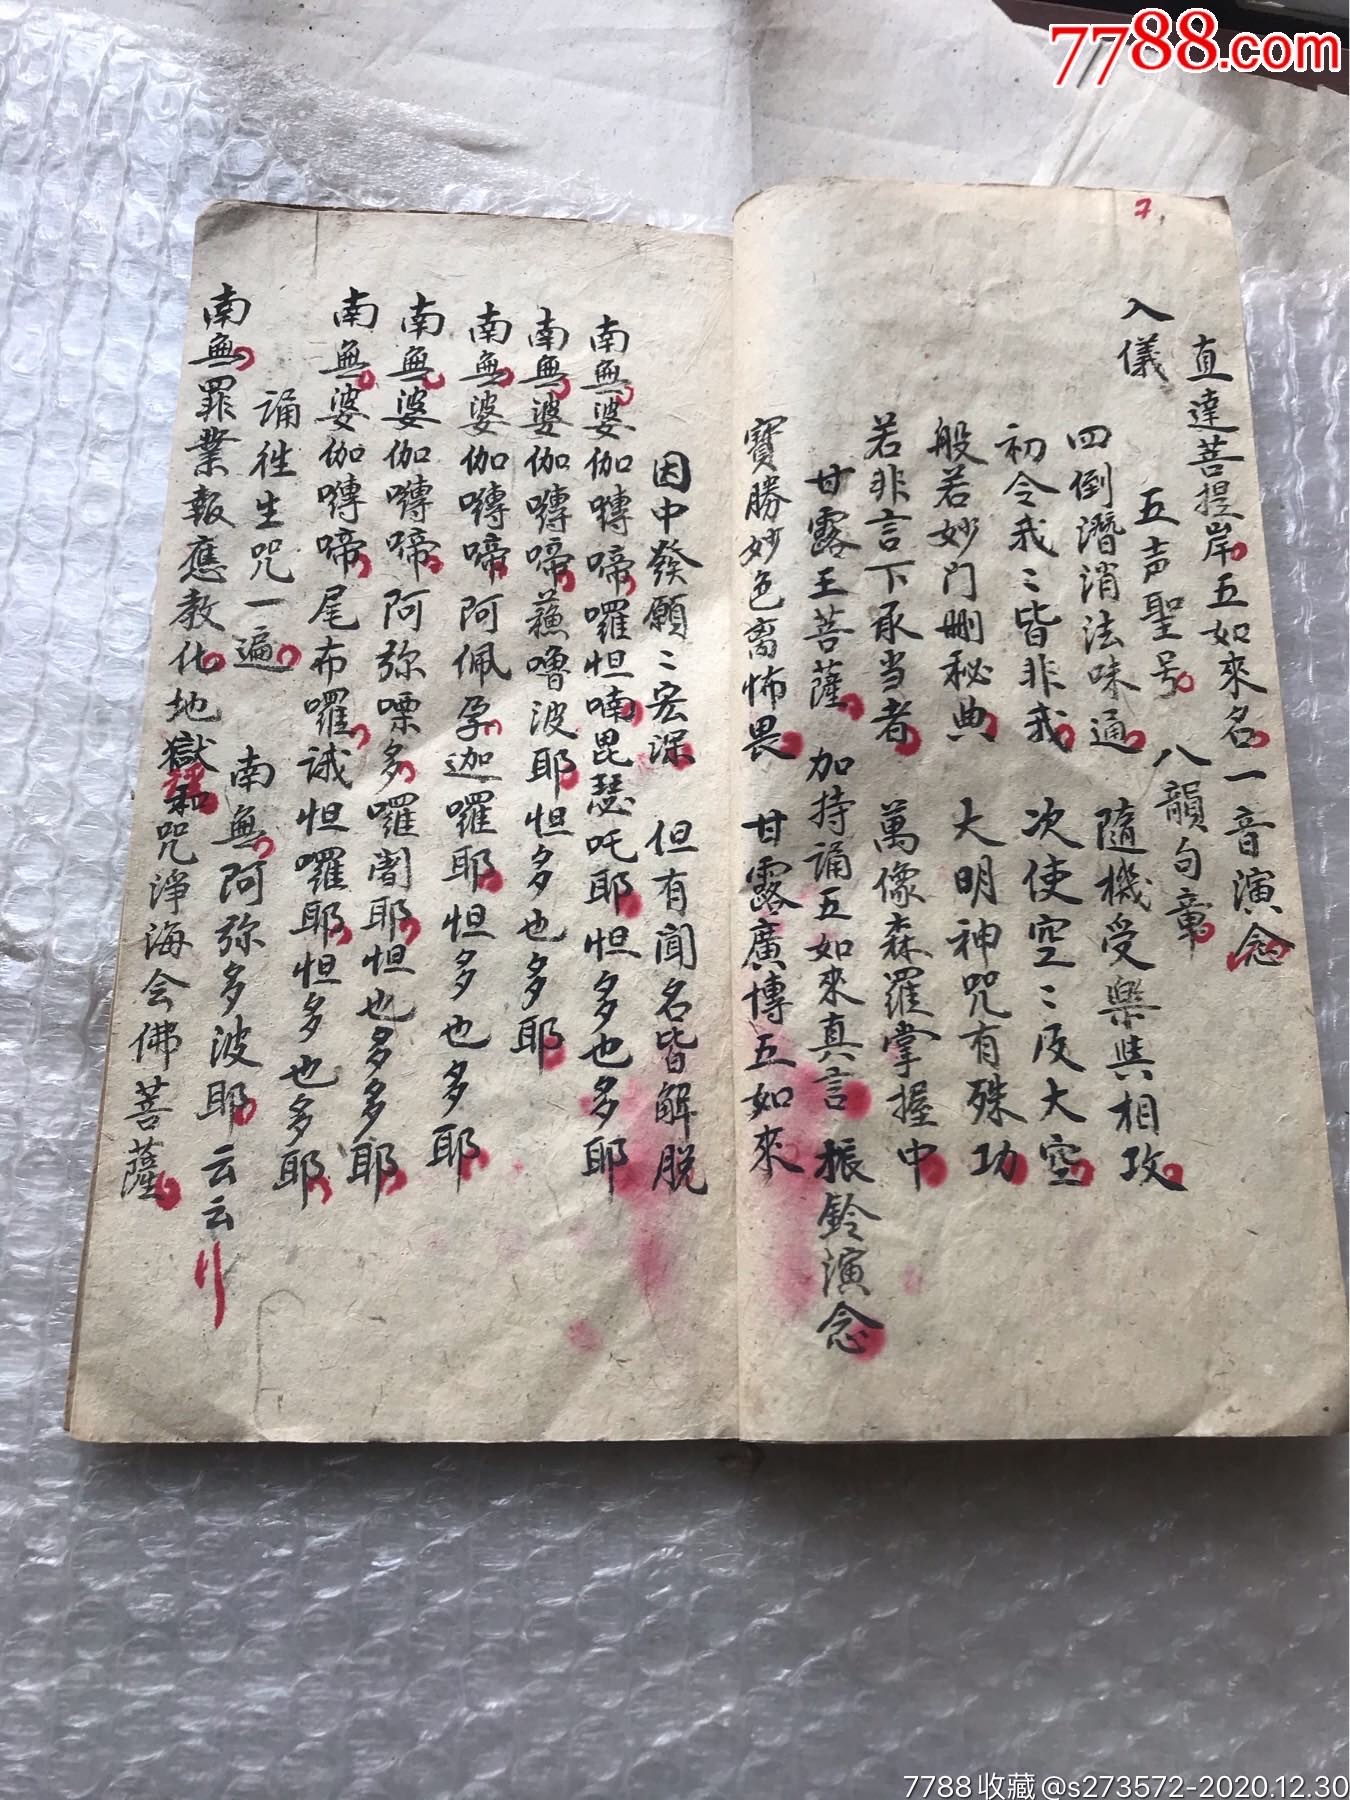 7788.com
7.
直達菩提岸五如來名一音演念
五声聖号 八韻句章
入儀
四倒潛消法味通 隨機受樂與相攻
初令我〻皆非我 次使空〻反大空
般若妙门刪秘典 大明神咒有殊功
若非言下承当者 萬像森羅掌握中
甘露王菩薩 加持诵五如來真言 振鈴演念
寶勝妙色离怖畏 甘露廣博五如來
因中發願〻宏深 但有聞名皆解脱
南無婆伽嚩啼囉怛喃毘瑟吒耶怛多也多耶
南無婆伽嚩啼蘓嚕波耶怛多也多耶
南無婆伽嚩啼阿佩孕迦囉耶怛多也多耶
南無婆伽嚩啼阿弥嘌多囉闍耶怛也多多耶
南無婆伽嚩啼尾布囉诫怛囉耶怛多也多耶
诵徃生咒一遍 南無阿弥多波耶云云
南無罪業報應教化地獄咒淨海会佛菩薩
7788收藏@s273572-2020.12.30